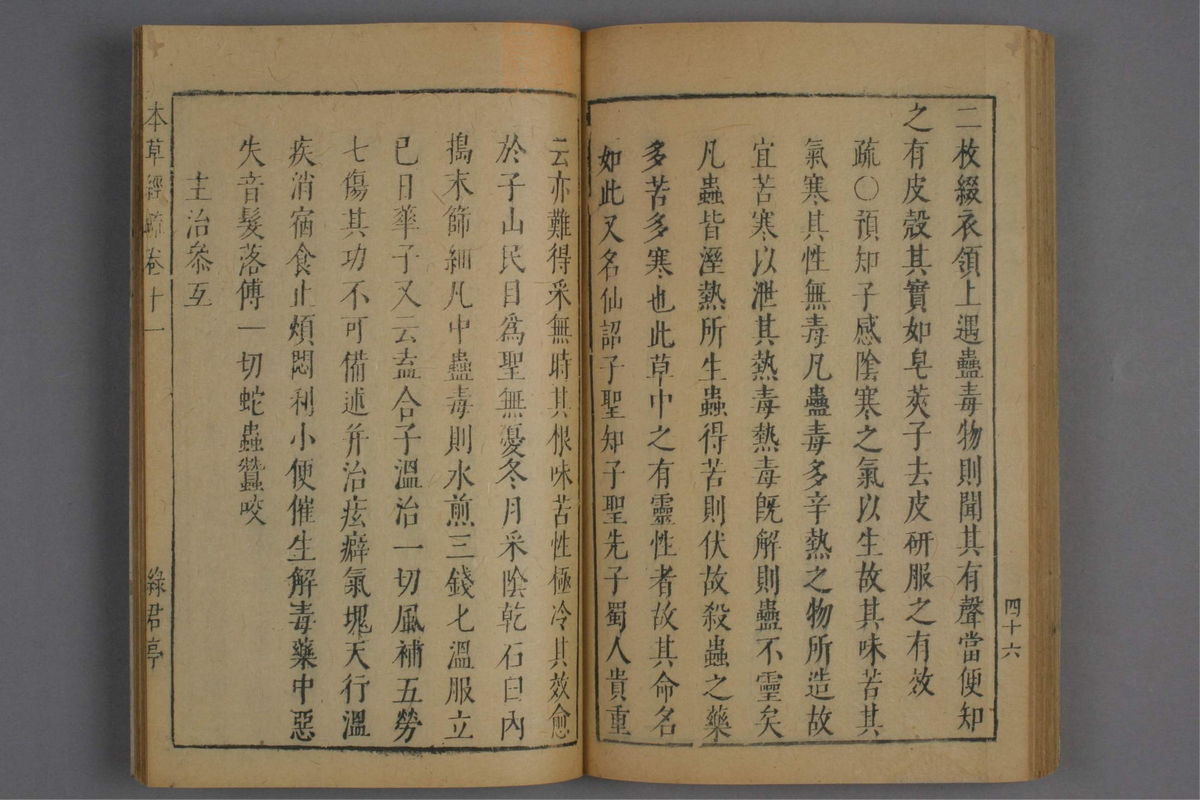 二枚綴衣領上遇蠱毒物則聞其有聲當便知
之有皮殼其實如皂莢子去皮研服之有效
疏〇預知子感陰寒之氣以生故其味苦其
氣寒其性無毒凡蠱毒多辛熱之物所造故
宜苦寒以泄其熱毒熱毒旣解則蠱不靈矣
凡蟲皆溼熱所生蟲得苦則伏故殺蟲之藥
多苦多寒也此草中之有靈性者故其命名
如此又名仙詔子聖知子聖先子蜀人貴重
四十六
云亦難得采無時其根味苦性極冷其效愈
於子山民目爲聖無憂冬月采陰乾石臼內
搗末篩細凡中蠱毒則水煎三錢匕溫服立
已日華子又云盍合子溫治一切風補五勞
七傷其功不可備述幷治痃癖氣塊天行溫
疾消宿食止煩悶利小便催生解毒藥中惡
失音髮落傅一切蛇蟲蠶咬
主治叅互
本草經疏卷十一
綠君亭